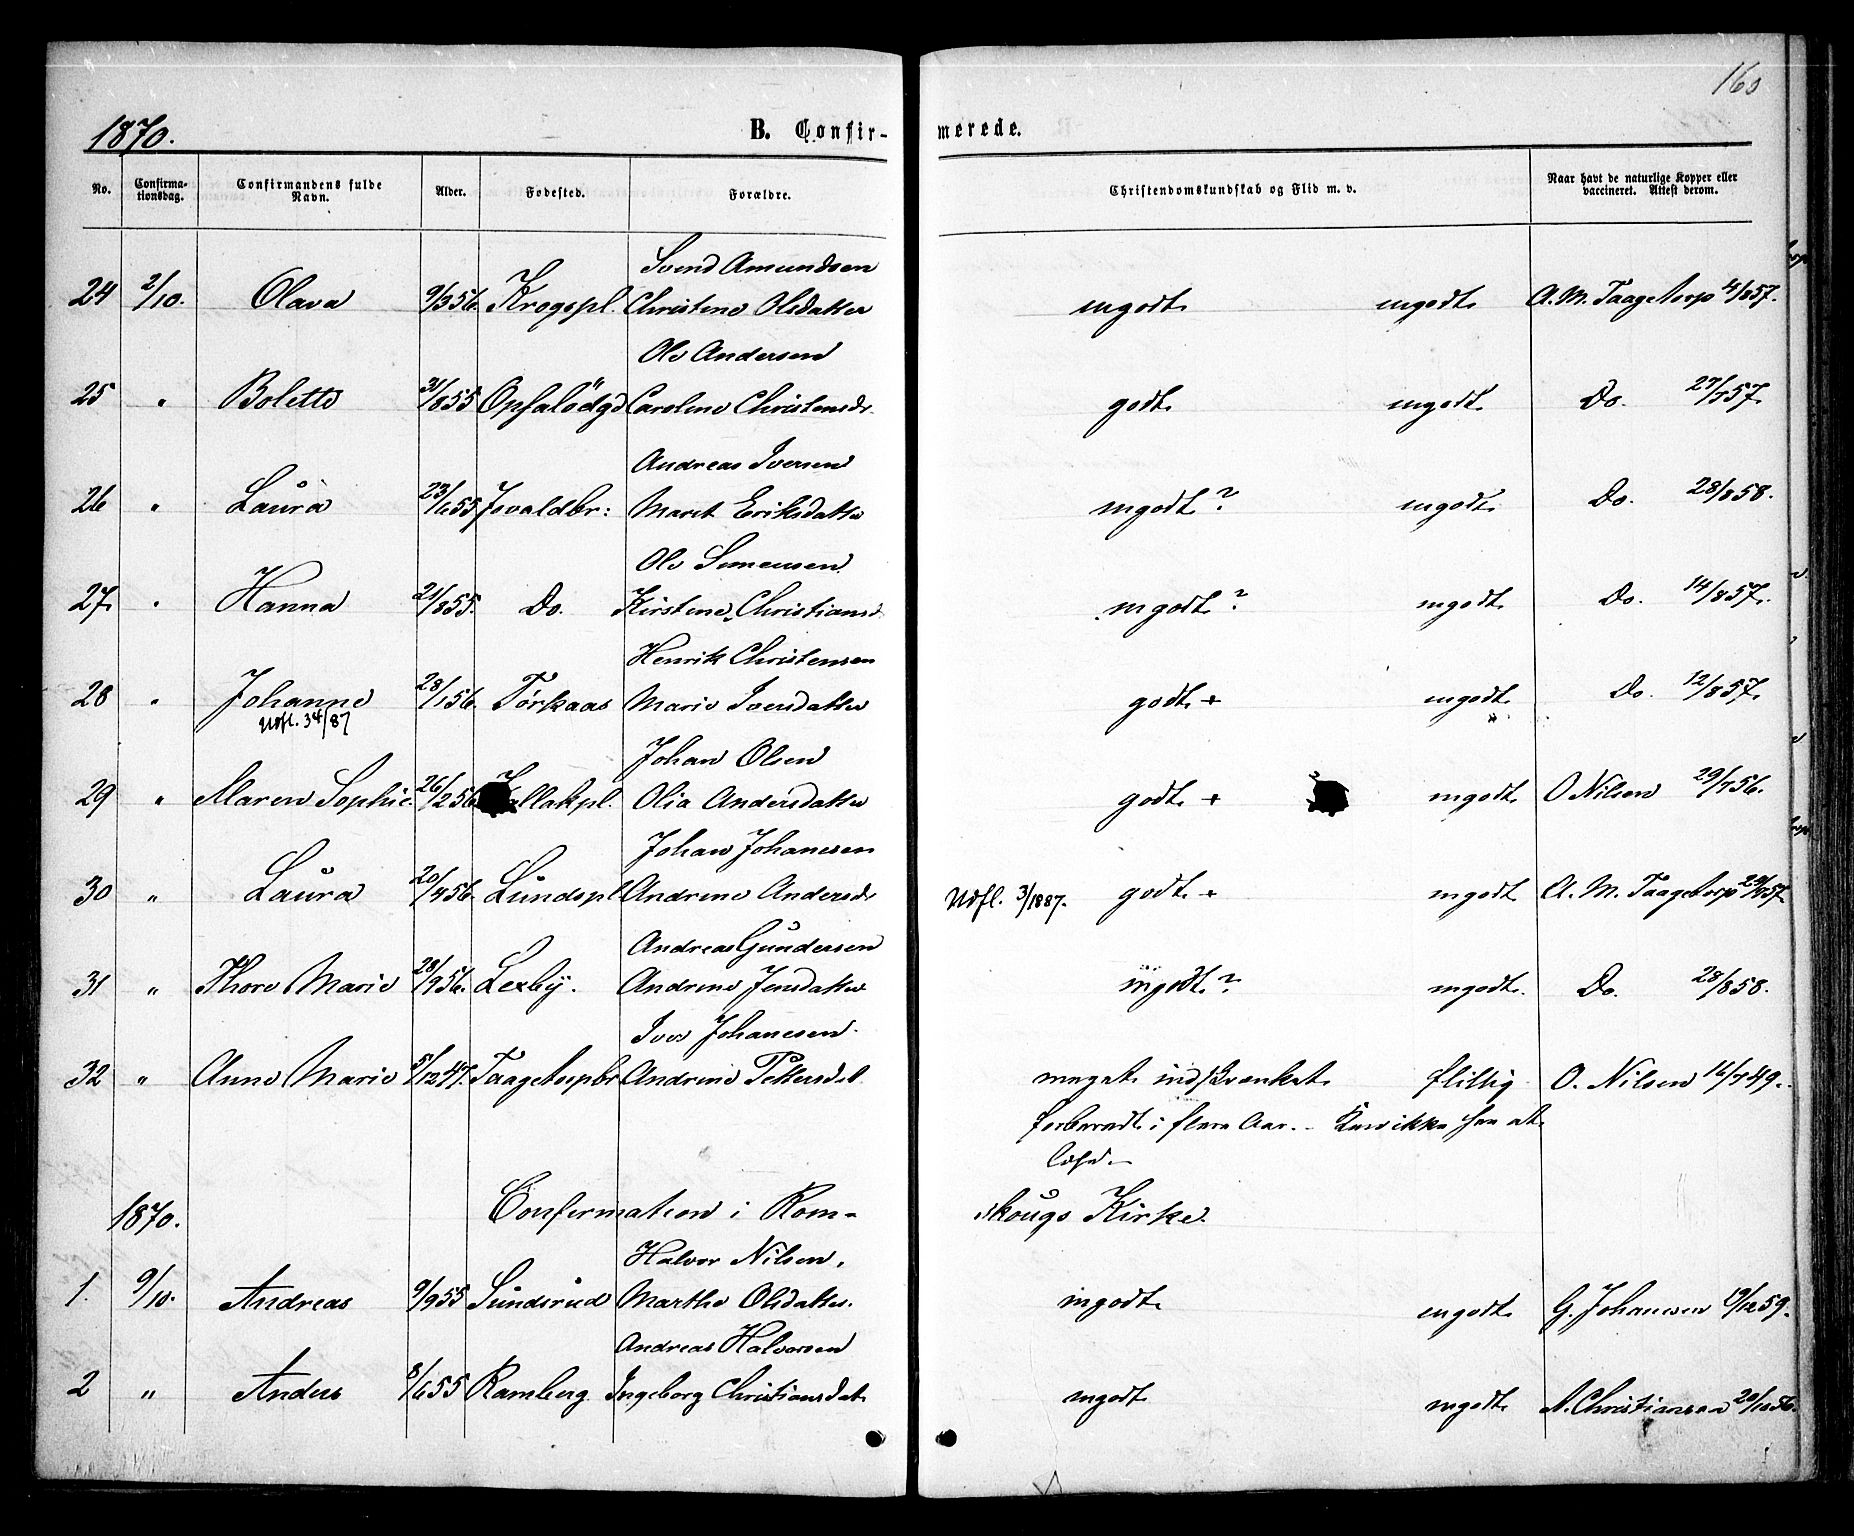 160
1870. B. Confirmerede.
No. Confirmationsdag. Confirmandens fulde Navn. Alder. Fødested. Forældre. Christendomskundskab og Flid m. v. Naar havt de naturlige Kopper eller vaccineret. Attest derom.
Svend Amundsen
24 2/10. Olava 9/3 56. Krogspl. Christine Olsdatter mgodt mgodt A. M. Taagetorp 4/8 57.
Ole Andersen
25 " Bolette 31/8 55 Opfalödgd Caroline Christensd. godt mgodt Do. 27/5 57.
Andreas Iversen
26 " Laura 23/6 55 Isvaldbr: Maret Eriksdatter mgodt? mgodt Do. 28/8 58.
Ole Simensen
27 " Hanna 21/8 55. Do. Kirstine Christiansd. mgodt? mgodt Do. 14/8 57.
Henrik Christensen
28 " Johanne 28/1 56. Tørkaas Marie Iversdatter godt + mgodt Do. 12/8 57.
Udfl. 3 4/87
Johan Olsen
29 " Maren Sophie. 26/2 56 allakpl. Olia Andersdatter godt + mgodt O Nilsen 29/7 56.
Johan Johanesen
30 " Laura 20/4 56. Lundspl Andrine Andersd. Udfl. 3/1887. godt + mgodt A. M. Taagetorp 57
Andreas Gundersen
31 " Thore Marie 28/9 56. Lexby. Andrine Jensdatter mgodt? mgodt. Do. 28/8 58.
Iver Johanesen
32 " Anne Marie 5/12 47. Taagetorpbr Andrine Pettersd. meget indskrænket flittig O. Nilsen 16/7 49.
forberedt i flere Aar. - Kan ikke læse.
1870. Confirmation i Romskougs Kirke.
Halvor Nilsen,
1. 9/10. Andreas 9/9 55 Sundsrud Marthe Olsdatter. mgodt mgodt G. Johanesen 19/12 59.
Andreas Halvorsen
2 " Anders 8/6 55 Ramberg Ingeborg Christiansdat. mgodt mgodt N. Christiansen 20/10 56.